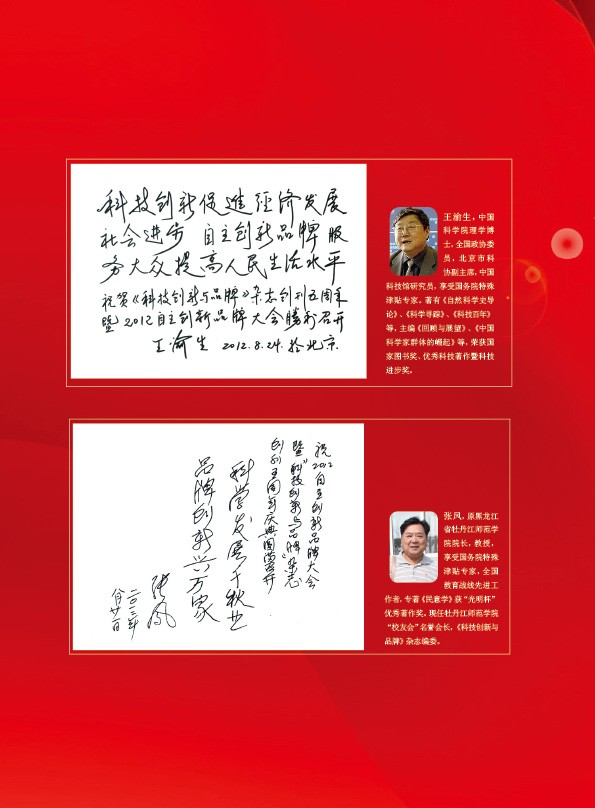 科技创新促进经济发展
社会进步 自主创新品牌服
务大众提高人民生活水平
祝贺《科技创新与品牌》杂志创刊五周年
暨2012自主创新品牌大会胜利召开
王渝生 2012.8.24.於北京
王渝生，中国
科学院理学博
士，全国政协委
员，北京市科
协副主席，中国
科技馆研究员，享受国务院特殊
津贴专家。著有《自然科学史导
论》、《科学寻踪》、《科技百年》
等，主编《回顾与展望》、《中国
科学家群体的崛起》等，荣获国
家图书奖、优秀科技著作暨科技
进步奖。
祝2012自主创新品牌大会
暨《科技创新与品牌》杂志
创刊五周年庆典圆满召开
科学发展千秋业
品牌创新兴万家
张凤
二〇一二年
张凤，原黑龙江
省牡丹江师范学
院院长，教授，
享受国务院特殊
津贴专家，全国
教育战线先进工
作者，专著《民意学》获“光明杯”
优秀著作奖。现任牡丹江师范学院
“校友会”名誉会长，《科技创新与
品牌》杂志编委。